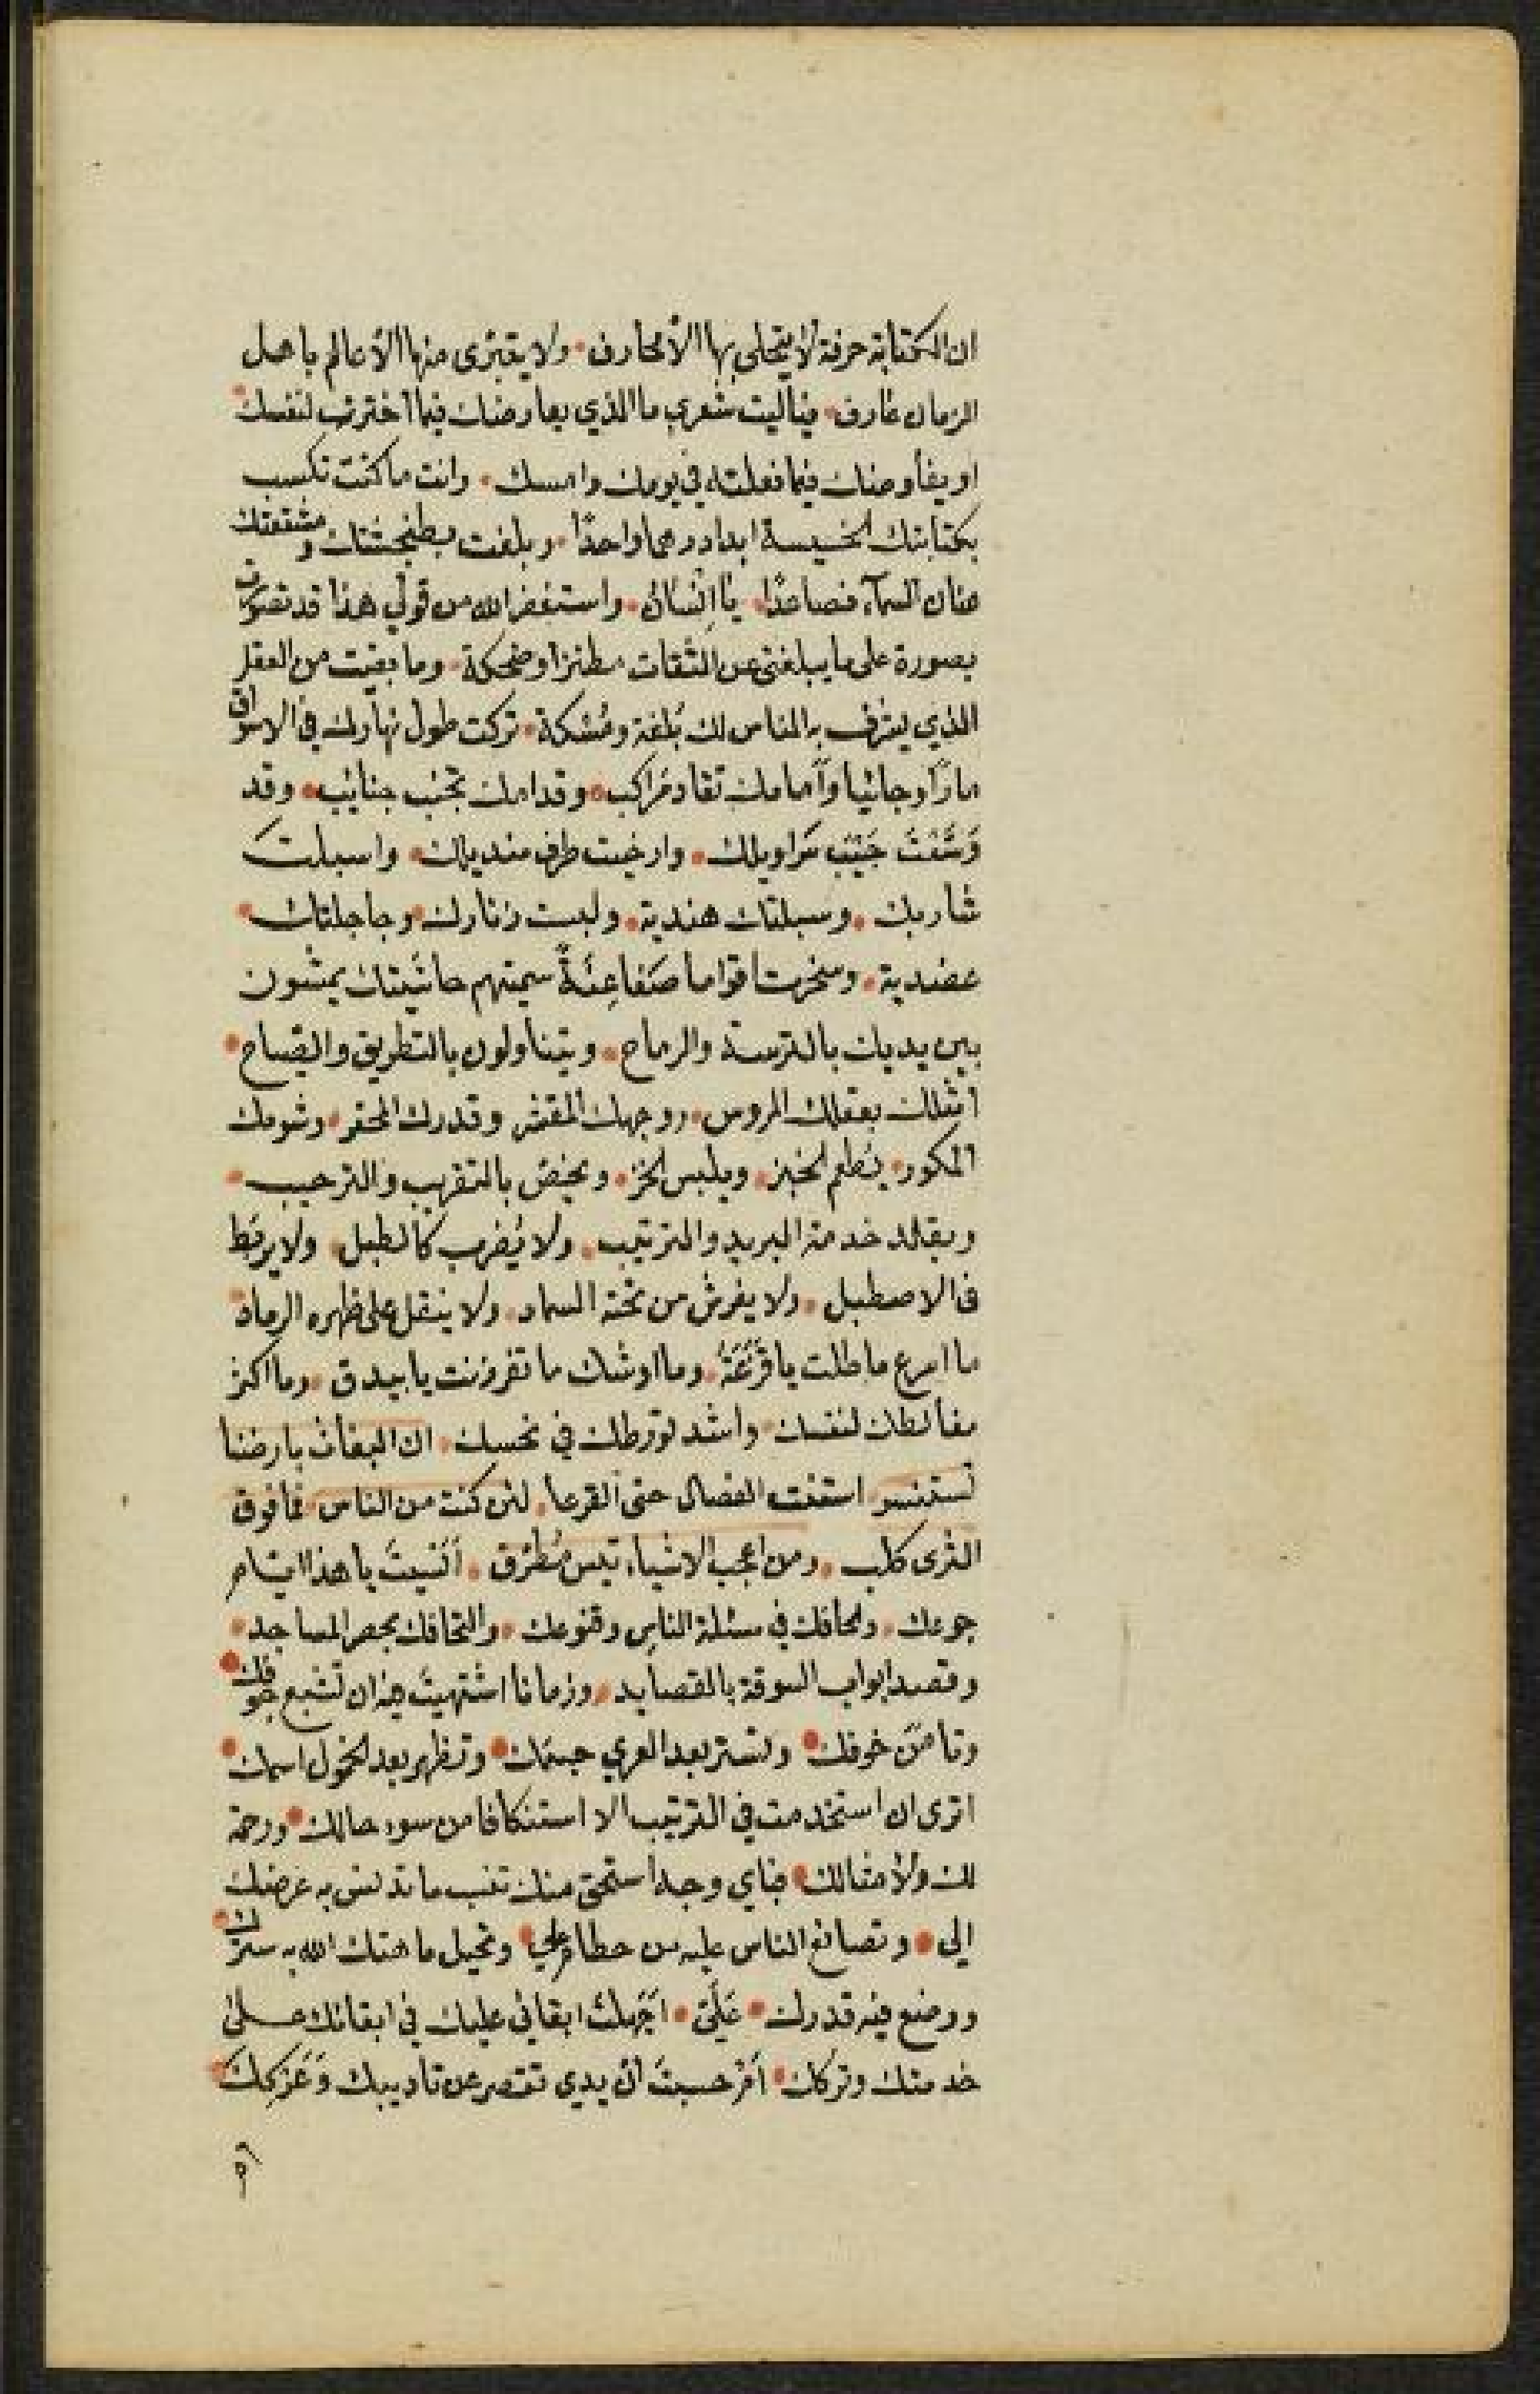 ان الكتابة حرفة لا يتحلى بها الا محارف ولا يتبرى منها الا عالم باهل
الزمان عارف فيا ليت شعري ما الذي يعارضك فيما اخترته لنفسك
او يفاوضك فيما فعلته في يومك وامسك وانت ما كنت تكسب
بكتابتك الخسيسة ابدا درهما واحدًا وبلغت بطنجشتك ومشقتك
عنان السمآء فصاعدًا يا انسان واستغفر الله من قولي هذا قد تصورت
بصورة على ما يبلغني عن الثقات مطنزا وضحكة وما بقيت من العقل
الذي يعرف به الناس لك بُلغة ومُسْكة تركت طول نهارك في الاسواق
مارًّا وجائيا وأمامك تقاد مراكب وقدامك تجنب جنائب وقد
وَسَّعْتَ جَيْبَ سراويلك وارخيت طرف منديلك واسبلت
شاربك وسبلتك هندية ولبست زنارك وجاجلتك
عضدية وسخرت اقواما صَفَاعِنَةً سميتهم حاشيتك يمشون
بين يديك بالترسة والرماح ويتناولون بالتطريق والصياح
أمثلك بعقلك المروس ووجهك المقشر وقدرك المحقر وشومك
المكور يُطعم الخبز ويلبس الخز ويختص بالتقريب والترحيب
ويقلد خدمة البريد والترتيب ولا يُضرب كالطبل ولا يربط
في الاصطبل ولا يفرش من تحته السماد ولا ينقل على ظهره الرماد
ما اسرع ما طلت يا قَرْعَةُ وما اوشك ما تفرزنت يا بيدق وما اكثر
مغالطك لنفسك واشد تورطك في نحسك ان البغاث بارضنا
تستنسر استنت الفصال حتى القرعا لئن كنت من الناس فما فوق
الثرى كلب ومن اعجب الاشياء تيس مُطرق أنسيتَ يا هذا ايام
جوعك والحافك في مسئلة الناس وقنوعك والتحافك بحصر المساجد
وقصد ابواب السوقة بالقصايد وزمانا اشتهيت فيه ان تشبع جوفك
وتامن خوفك ولتستر بعد العري جسمك وتظهر بعد الخمول اسمك
اترى ان استخدمت في الترتيب الا استنكافا من سوء حالك ورحمة
لك ولامثالك فباي وجه استحق منك تنسب ما تدنس به عرضك
الي وتصانع الناس عليه من حطام علي وتحيل ما هتك الله به سترك
ووضع فيه قدرك عَلَيَّ أجهلتَ ابقائي عليك في ابقائك على
خدمتك وتركك أم حسبتَ أن يدي تقصر عن تاديبك وَعَزْلِكَ